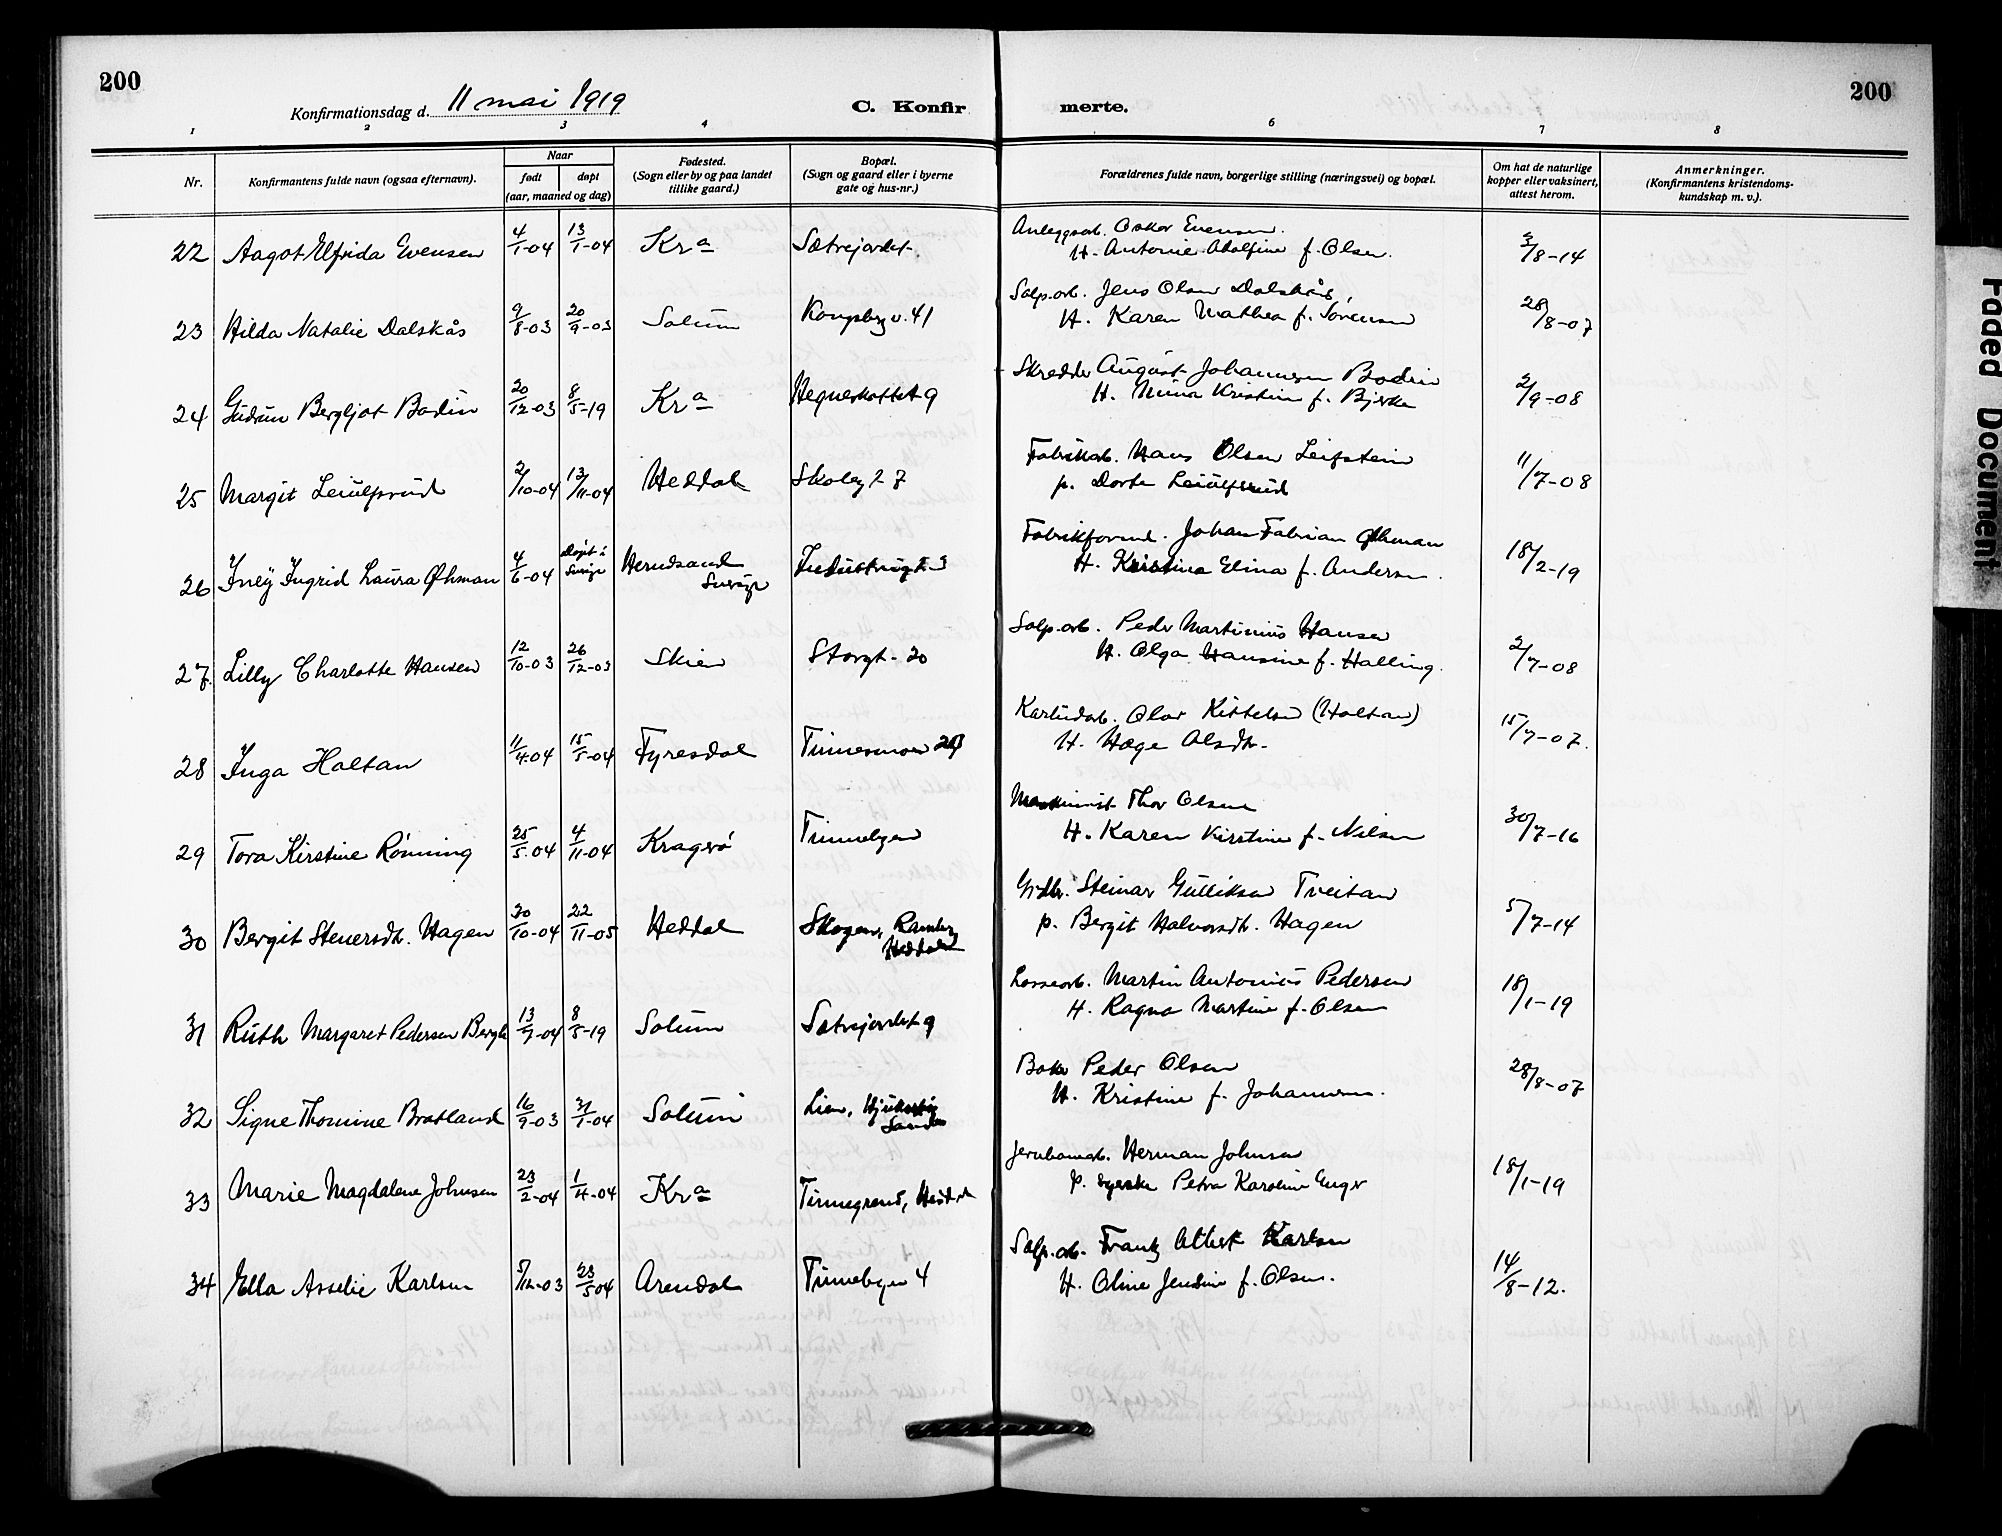 200
Konfirmationsdag d. 11 mai 1919
C. Konfir
merte.
200
1
2
3
4
6
7
8
Nr.
Konfirmantens fulde navn (ogsaa efternavn).
Naar
født
døpt
(aar, maaned og dag)
Fødested.
(Sogn eller by og paa landet
tillike gaard.)
Bopæl.
(Sogn og gaard eller i byerne
gate og hus-nr.)
Forældrenes fulde navn, borgerlige stilling (næringsvei) og bopæl.
Om hat de naturlige
kopper eller vaksinert,
attest herom.
Anmerkninger.
(Konfirmantens kristendoms-
kundskap m. v.).
22 Aagot Elfrida Evensen 4/1-04 13/1-04 Kra Sætrejordet. Anleggsarb. Oskar Evensen.
H. Antonie Adolfine f. Olsen. 3/8-14
23 Hilda Natalie Dalskås 9/8-03 20/9-03 Solum Kongsbg v. 41 Salp.arb. Jens Olsen Dalskås,
H. Karen Mathea f. Sørensen 28/8-07
24 Gudrun Bergljot Bodin 20/12-03 8/5-19 Kra Hegnerkottet 9 Skredder August Johannsen Bodin
H. Mina Kristine f. Bjerke 2/9-08
25 Margit Leiulfsrud 2/10-04 13/11-04 Heddal Skoleg 27 Fabrikarb. Hans Olsen Leifstein
p. Dorte Leiulfsrud 11/7-08
26 Iney Ingrid Laura Øhman 4/6-04 døpt i
Sverige Hernösand
Sverige Industrigt. 3 Fabrikformd. Johan Fabian Øhman
H. Kristina Elina f. Anderson. 18/2-19
27 Lilly Charlotte Hansen 12/10-03 26/12-03 Skien Storgt. 20 Salp.arb. Peder Martinius Hansen
H. Olga Hansine f. Halling. 2/7-08
28 Inga Holtan 11/4-04 15/5-04 Fyresdal Tinnesmoen Karbidarb. Olav Kittelsen (Holtan)
H. Hæge Olsdtr. 15/7-07.
29 Tora Kirstine Rønning 25/5-04 4/11-04 Kragerø Tinnebyen Maskinist Thor Olsen
H. Karen Kirstine f. Nilsen 30/7-16
30 Bergit Stenersdtr. Hagen 30/10-04 22/11-05 Heddal Skogen, Ramberg
Heddal Grdbr. Steinar Gulliksen Tveitan
p. Bergit Halvorsdtr. Hagen 5/7-14
31 Ruth Margaret Pedersen Bergli 13/7-04 8/5-19 Solum Sætrejordet 9 Lossearb. Martin Antonius Pedersen
H. Ragna Martine f. Olsen 18/1-19
32 Signe Thomine Bratland 16/9-03 31/1-04 Solum Lien, Hjuksebø
Sauda Baker Peder Olsen
H. Kristine f. Johannesen. 28/8-07
33 Marie Magdalene Johnsen 23/2-04 1/4-04 Kra Tinnegrend, Heddal Jernbanearb. Herman Johnsen
p. syerske Petra Karoline Enger 18/1-19
34 Ella Asselie Karlsen 5/12-03 23/5-04 Arendal Tinnebyen 4 Salp.arb. Frantz Albert Karlsen
H. Oline Jensine f. Olsen. 14/8-12.
Faded Document